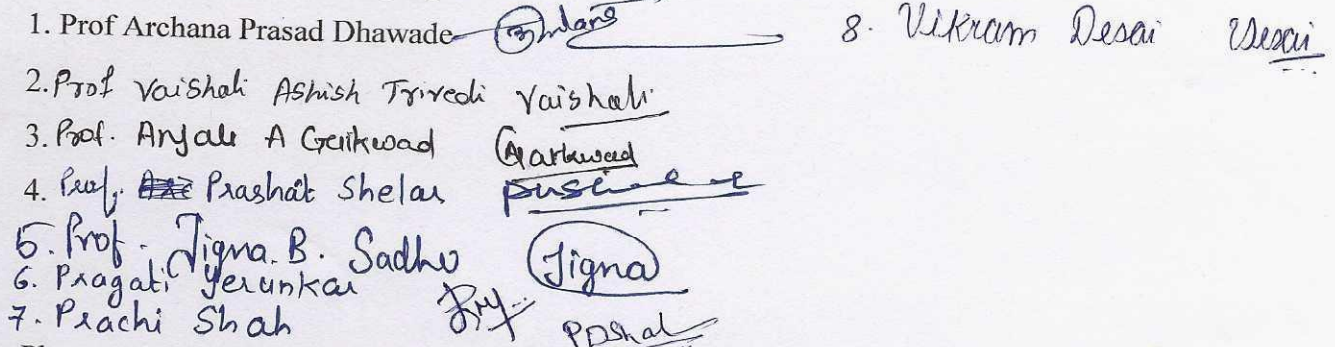 1. Prof Archana Prasad Dhawade
8. Vikram Desai Desai
2. Prof Vaishali Ashish Trivedi Vaishali
3. Prof. Anjali A Gaikwad Gaikwad
4. Prof. Prashant Shelar
5. Prof. Jigna. B. Sadhu Jigna
6. Pragati Yerunkar
7. Prachi Shah PDShah